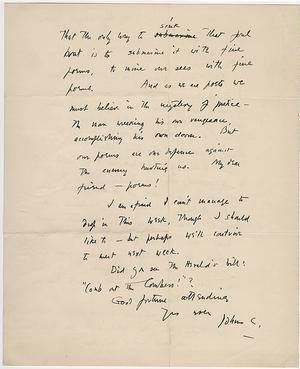 that the only way to sink submarine that foul
boat is to submarine it with fine
poems, to mine our seas with fine
poems. And as we are poets we
must believe in the mystery of justice —
the man wreaking his own vengeance,
accomplishing his own doom. But
our poems are our defence against
the enemy hurting us. My dear
friend — poems!
I am afraid I can't manage to
drop in this week though I should
like to — but perhaps we'll contrive
to meet next week.
Did you see The Herald's bill:
"Comb out the Combers!"?
Good fortune attending
Yrs ever
C.